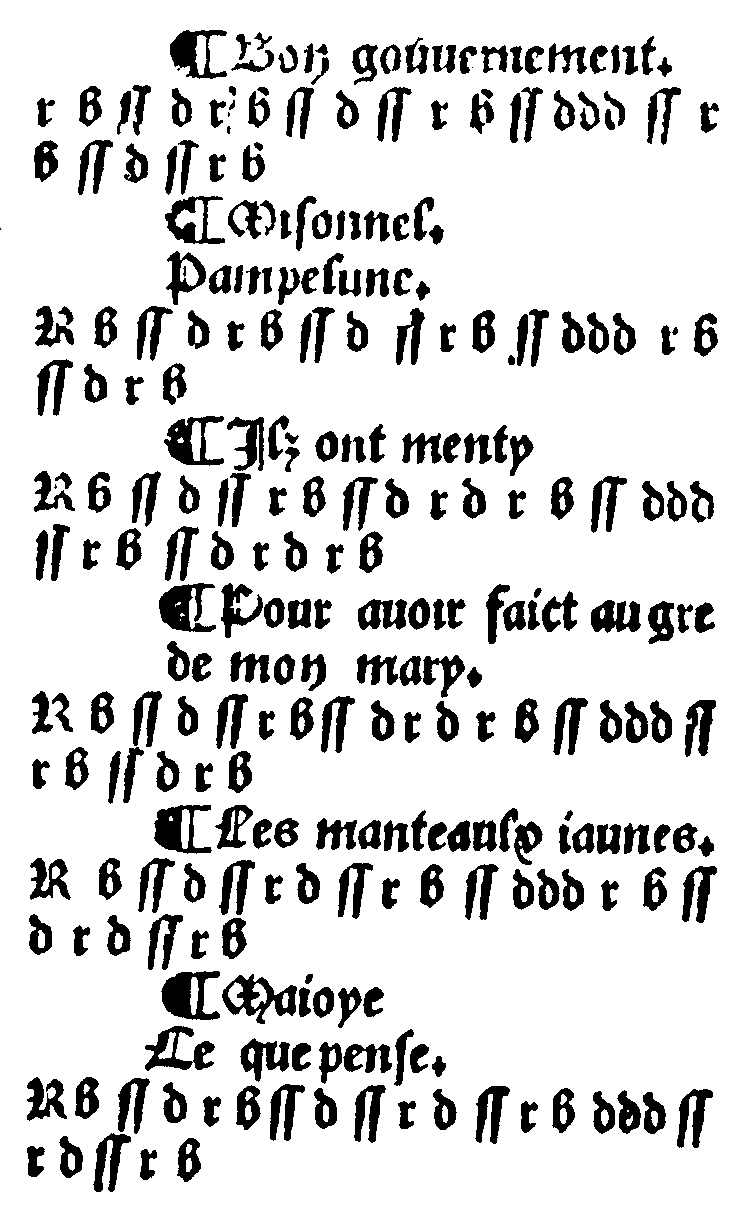 ¶Bon gouuernement.
r b ſſ d r b ſſ d ſſ r b ſſ ddd ſſ r
b ſſ d ſſ r b
¶Miſonnel.
Pampelune.
R b ſſ d r b ſſ d ſſ r b ſſ ddd r b
ſſ d r b
¶Ilz ont menty
R b ſſ d ſſ r b ſſ d r d r b ſſ ddd
ſſ r b ſſ d r d r b
¶Pour auoir faict au gre
de mon mary.
R b ſſ d ſſ r b ſſ d r d r b ſſ ddd ſſ
r b ſſ d r b
¶Les manteaulx iaunes.
R b ſſ d ſſ r d ſſ r b ſſ ddd r b ſſ
d r d ſſ r b
¶Maioye
Le que penſe.
R b ſſ d r b ſſ d ſſ r d ſſ r b ddd ſſ
r d ſſ r b